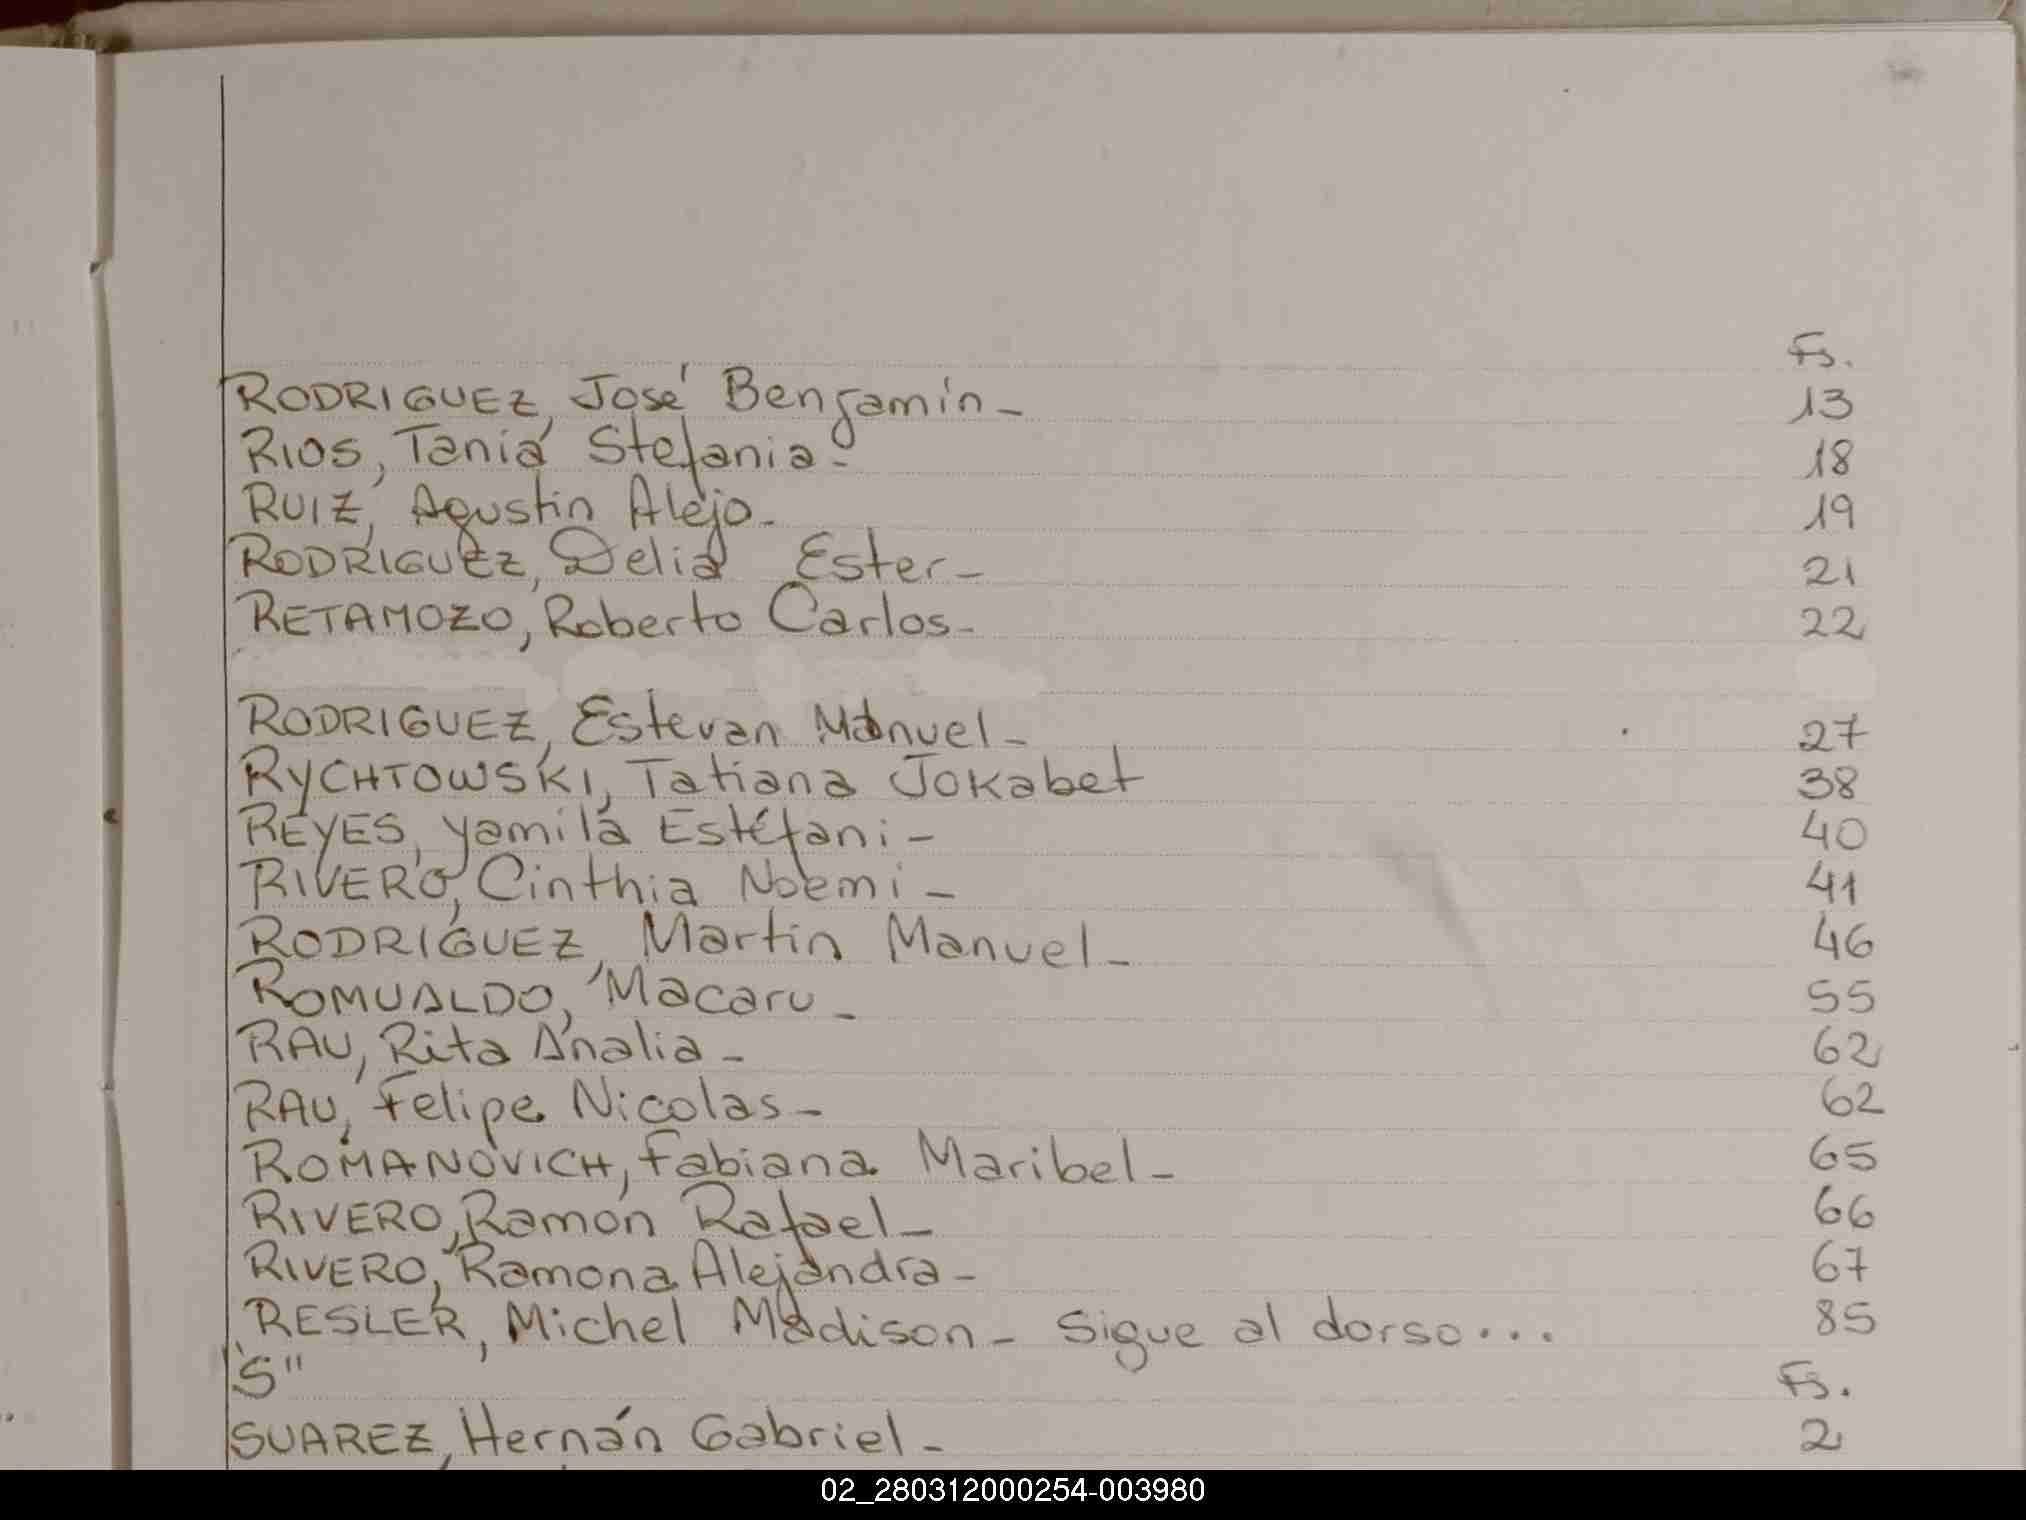 Fs.
RODRIGUEZ, José Benjamín - 13
RIOS, Tania Stefania - 18
RUIZ, Agustin Alejo - 19
RODRIGUEZ, Delia Ester - 21
RETAMOZO, Roberto Carlos - 22
RODRIGUEZ, Estevan Manuel - 27
RYCHTOWSKI, Tatiana Jokabet 38
REYES, Yamila Estéfani - 40
RIVERO, Cinthia Noemi - 41
RODRIGUEZ, Martin Manuel - 46
ROMUALDO, Macaru - 55
RAU, Rita Analia - 62
RAU, Felipe Nicolas - 62
ROMANOVICH, Fabiana Maribel - 65
RIVERO, Ramon Rafael - 66
RIVERO, Ramona Alejandra - 67
RESLER, Michel Madison - Sigue al dorso... 85
"S" Fs.
SUAREZ, Hernán Gabriel - 2
02_280312000254-003980